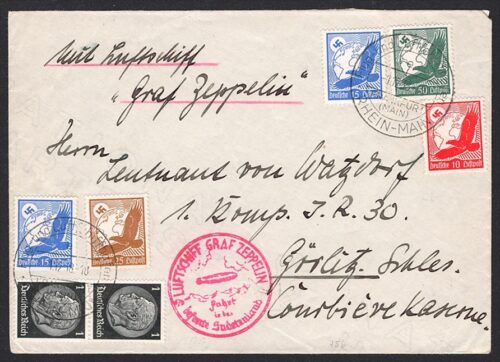 Mit Luftschiff
"Graf Zeppelin"
15 Deutsche Luftpost
50 Deutsche Luftpost
(MAIN)
RHEIN-MAIN
10 Deutsche Luftpost
Herrn
Leutnant von Watzdorf
1. Komp. I. R. 30.
Görlitz Schles.
Courbière Kaserne
15 Deutsche Luftpost
25 Deutsche Luftpost
LUFTSCHIFF GRAF ZEPPELIN
Fahrt
in das
befreite Sudetenland
1 Deutsches Reich
1 Deutsches Reich